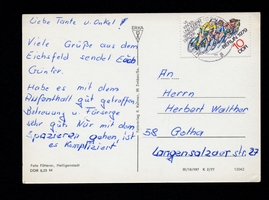 Liebe Tante u. Onkel!
Viele Grüße aus dem
Eichsfeld sendet Euch
Günter.
Habe es mit dem
Aufenthalt gut getroffen
Betreuung u. Fürsorge
sehr gut. Nur mit dem
Spazieren gehen ist
es kompliziert
Foto Fitterer, Heiligenstadt
An
Herrn
Herbert Walther
58 Gotha
Langensalzaer str. 27
10
DDR